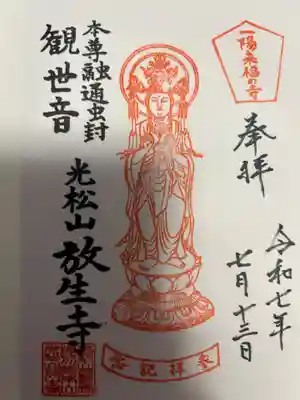 一陽来福の寺
奉拝
令和七年
七月十三日
本尊融通虫封
観世音
光松山 放生寺
参拝記念